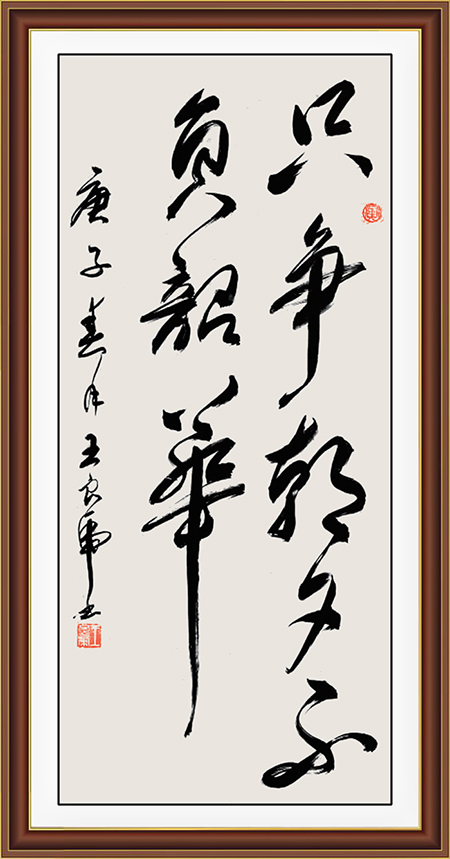 只争朝夕不
負韶華
庚子春月王良虎书